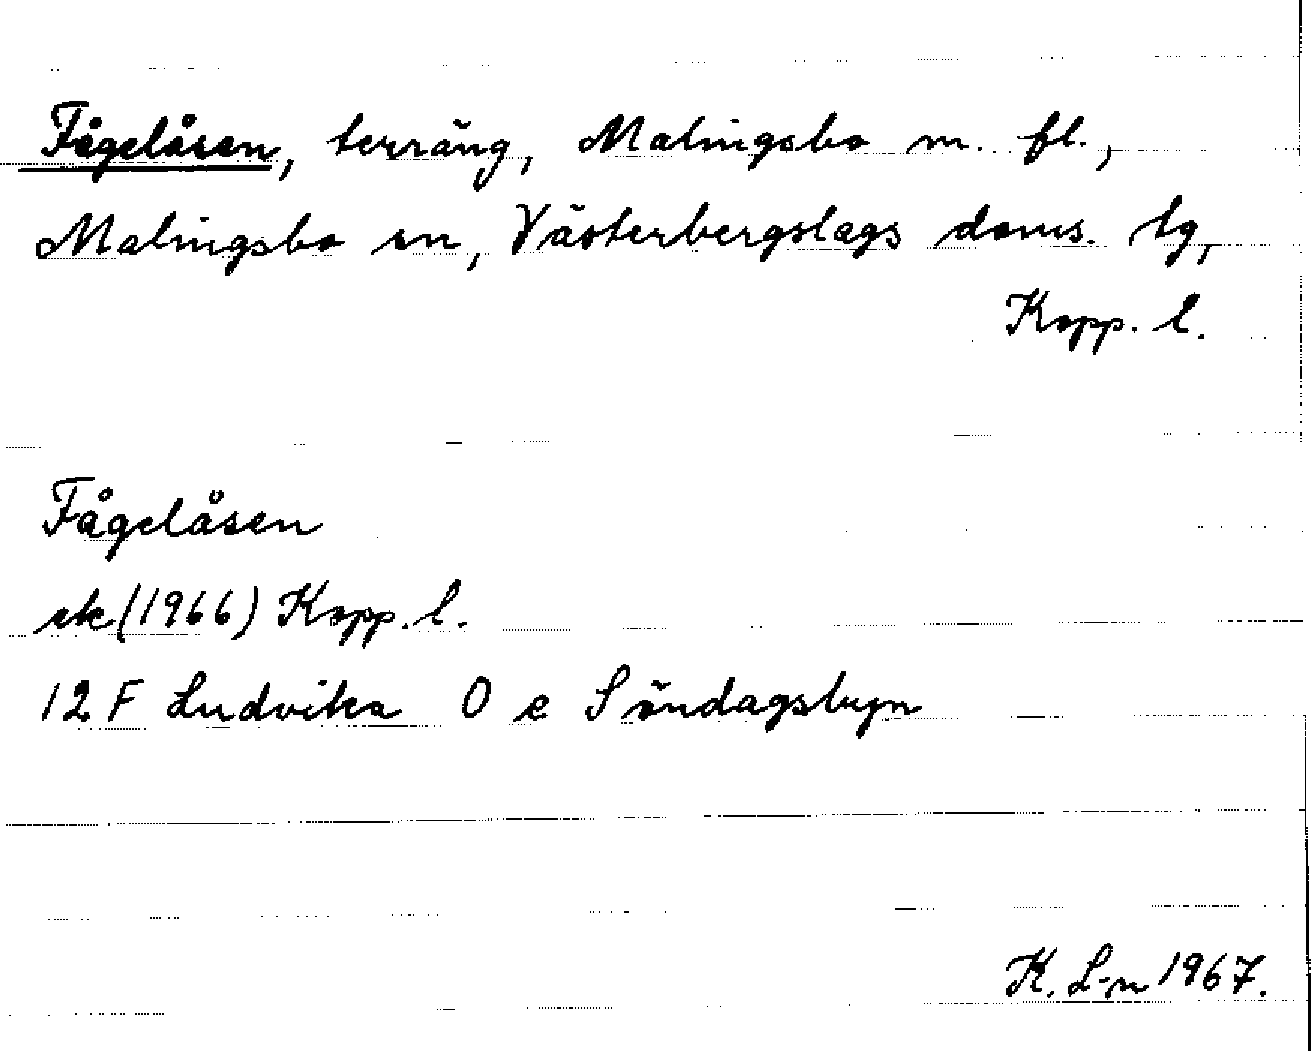 Fågelåsen, terräng, Malingsbo m. fl.,
Malingsbo sn, Västerbergslags doms. tg,
Kopp. l.
Fågelåsen
ek (1966) Kopp. l.
12 F Ludvika O e Söndagsbyn
K. L-n 1967.